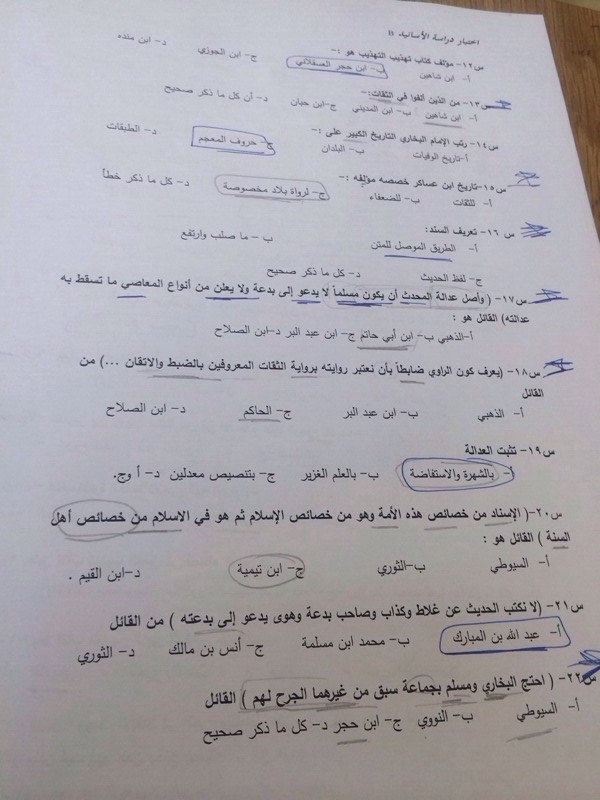 اختبار دراسة الأسانيد II
س١٢- مؤلف كتاب تهذيب التهذيب هو :-
أ- ابن شاهين ب- ابن حجر العسقلاني ج- ابن الجوزي د- ابن منده
س١٣- من الذين ألفوا في الثقات:-
أ- ابن شاهين ب- ابن المديني ج-ابن حبان د- أن كل ما ذكر صحيح
س١٤- رتب الإمام البخاري التاريخ الكبير على :-
أ-تاريخ الوفيات ب- البلدان ج- حروف المعجم د- الطبقات
س١٥- تاريخ ابن عساكر خصصه مؤلفه :-
أ- للثقات ب- للضعفاء ج- لرواة بلاد مخصوصة د- كل ما ذكر خطأ
س ١٦- تعريف السند:
أ- الطريق الموصل للمتن ب – ما صلب وارتفع
ج- لفظ الحديث د- كل ما ذكر صحيح
س١٧- ( وأصل عدالة المحدث أن يكون مسلماً لا يدعو إلى بدعة ولا يعلن من أنواع المعاصي ما تسقط به
عدالته) القائل هو :
أ-الذهبي ب- ابن أبي حاتم ج- ابن عبد البر د-ابن الصلاح
س١٨- (يعرف كون الراوي ضابطاً بأن نعتبر روايته برواية الثقات المعروفين بالضبط والاتقان ...) من
القائل
أ- الذهبي ب- ابن عبد البر ج- الحاكم د- ابن الصلاح
س١٩- تثبت العدالة
أ- بالشهرة والاستفاضة ب- بالعلم الغزير ج- بتنصيص معدلين د- أ وج.
س٢٠-( الإسناد من خصائص هذه الأمة وهو من خصائص الإسلام ثم هو في الاسلام من خصائص أهل
السنة ) القائل هو :
أ- السيوطي ب-الثوري ج- ابن تيمية د-ابن القيم .
س٢١- (لا نكتب الحديث عن غلاط وكذاب وصاحب بدعة وهوى يدعو إلى بدعته ) من القائل
أ- عبد الله بن المبارك ب- محمد ابن مسلمة ج- أنس بن مالك د- الثوري
س٢٢- ( احتج البخاري ومسلم بجماعة سبق من غيرهما الجرح لهم ) القائل
أ- السيوطي ب- النووي ج- ابن حجر د- كل ما ذكر صحيح